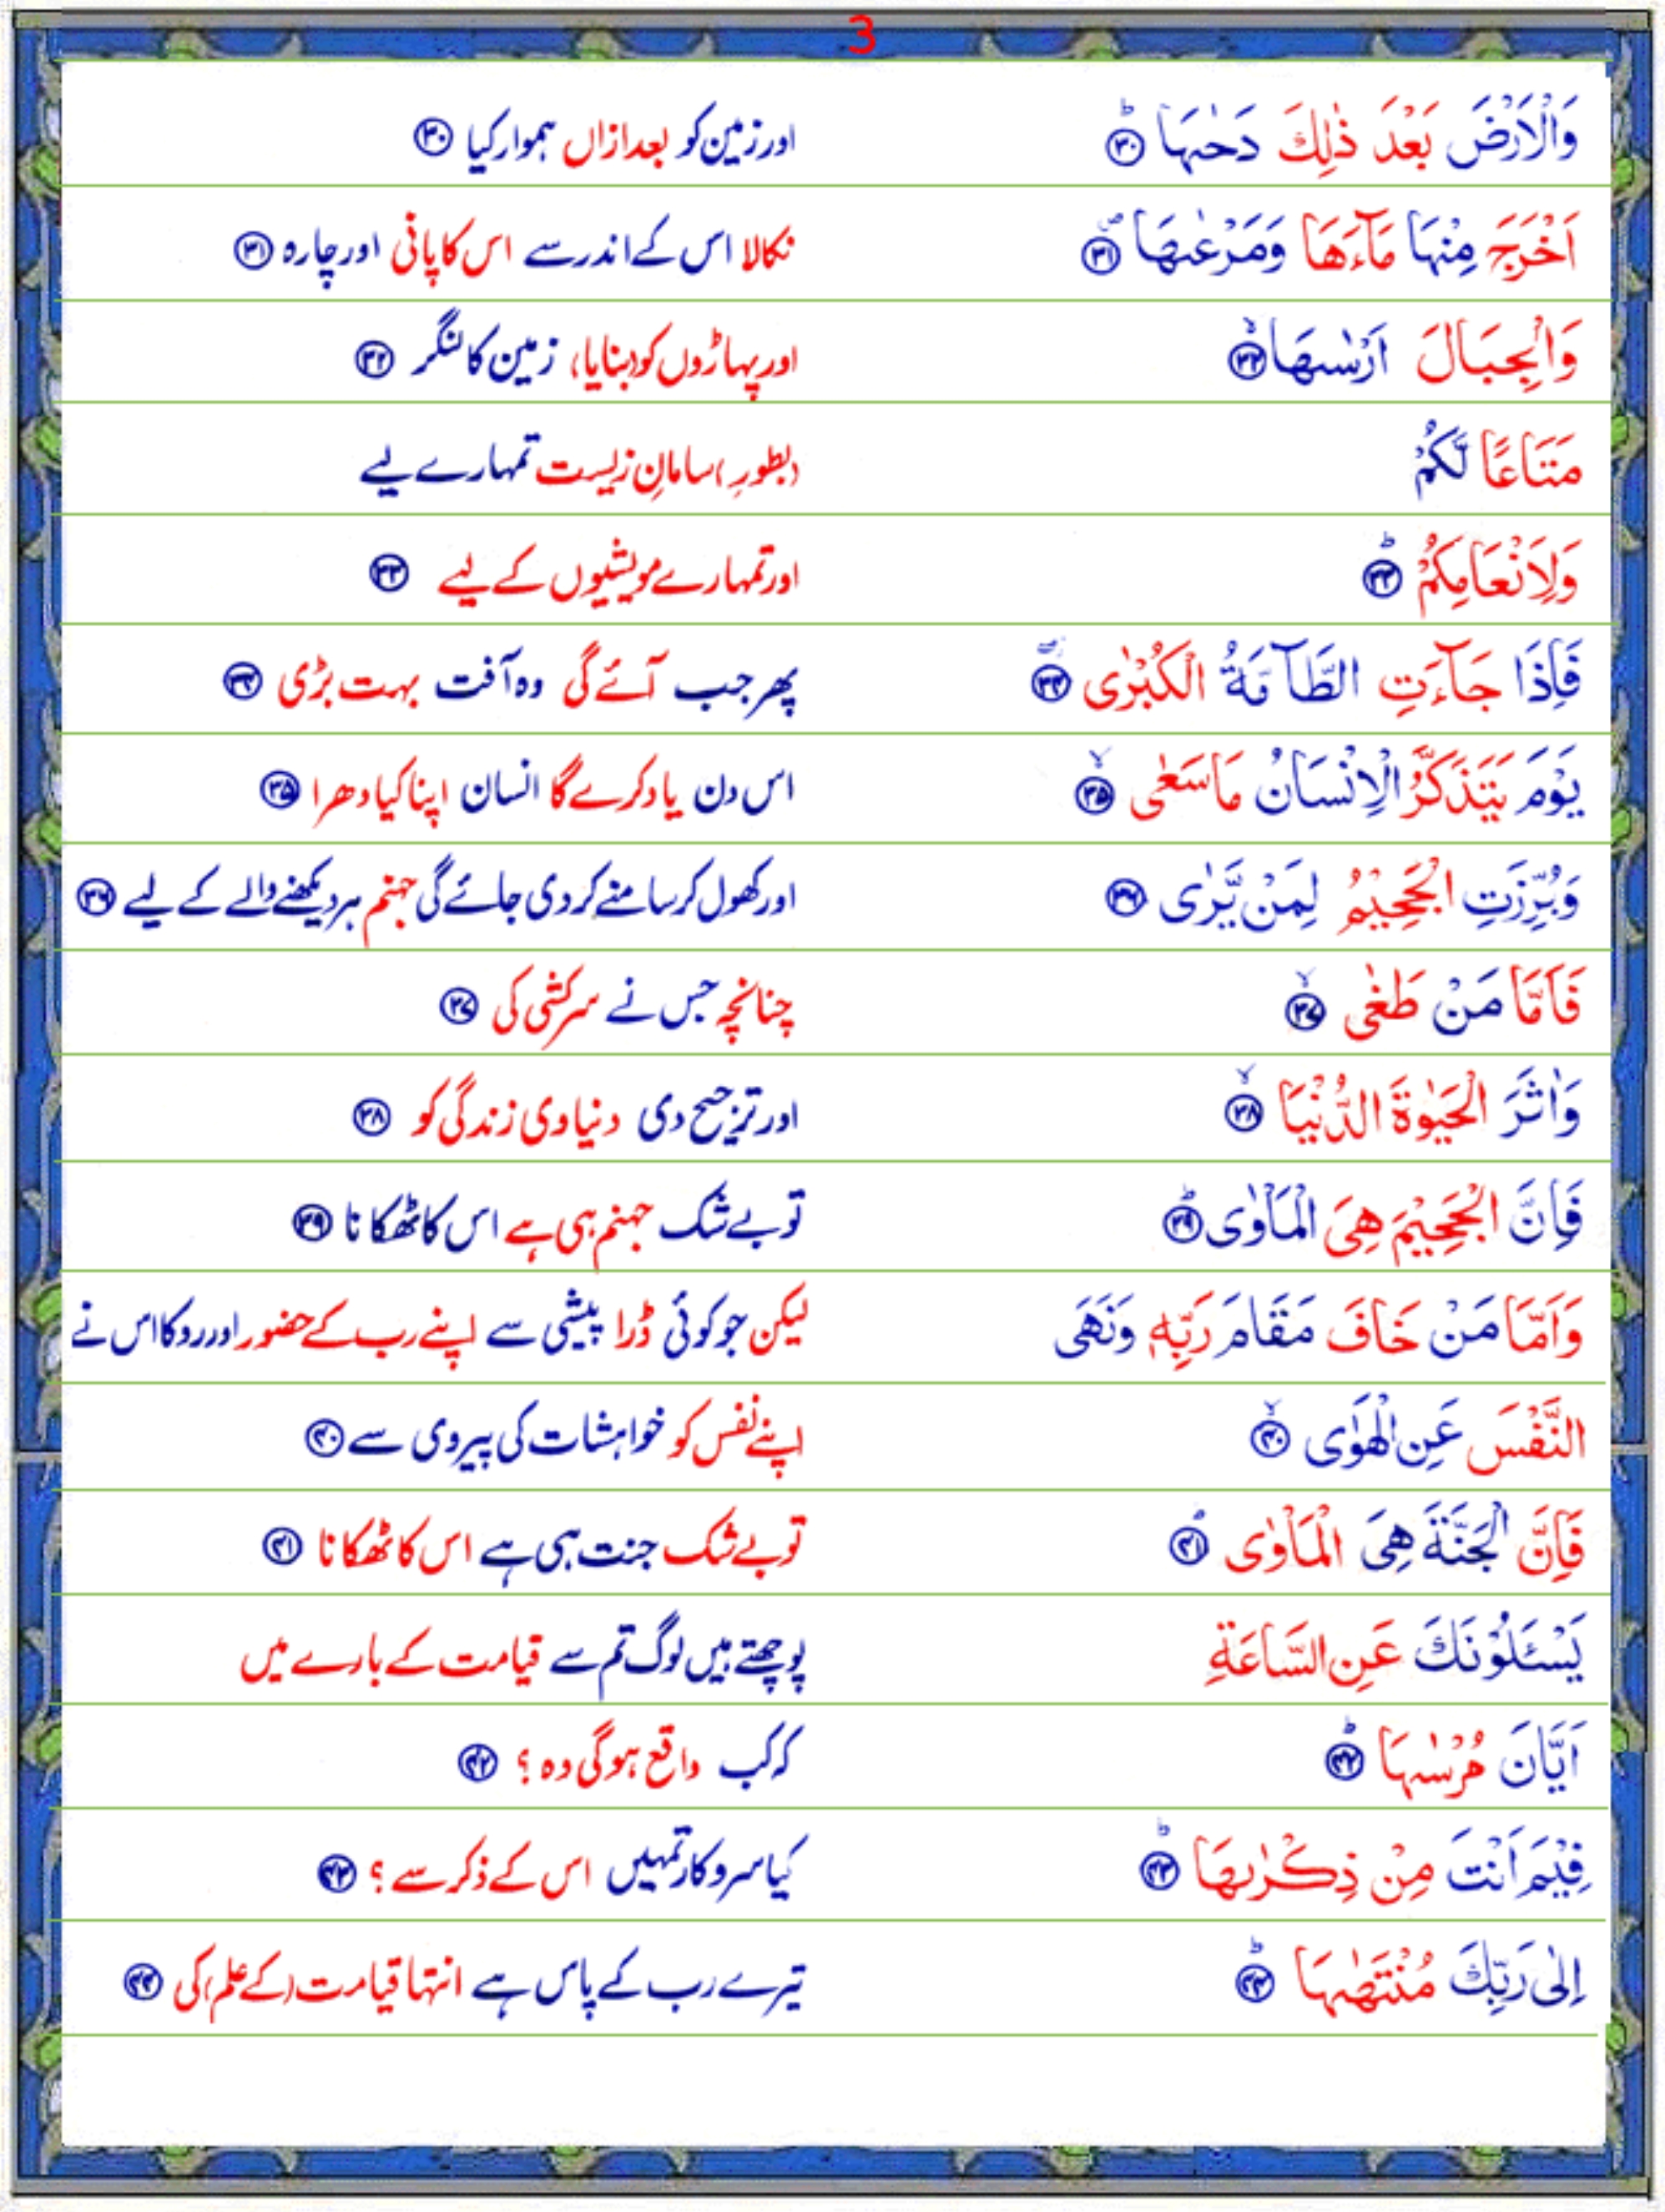 3
وَالْاَرْضَ بَعْدَ ذٰلِكَ دَحٰىہَا ؕ ۳۰ اور زمین کو بعد ازاں ہموار کیا ۳۰
اَخْرَجَ مِنْہَا مَآءَهَا وَمَرْعٰىهَا ۪ ۳۱ نکالا اس کے اندر سے اس کا پانی اور چارہ ۳۱
وَالْجِبَالَ اَرْسٰىهَا ۙ ۳۲ اور پہاڑوں کو (بنایا) زمین کا لنگر ۳۲
مَتَاعًا لَّكُمْ (بطورِ) سامانِ زیست تمہارے لیے
وَلِاَنْعَامِكُمْ ؕ ۳۳ اور تمہارے مویشیوں کے لیے ۳۳
فَاِذَا جَآءَتِ الطَّآمَّةُ الْكُبْرٰى ۳۴ پھر جب آئے گی وہ آفت بہت بڑی ۳۴
يَوْمَ يَتَذَكَّرُ الْاِنْسَانُ مَا سَعٰى ۙ ۳۵ اس دن یاد کرے گا انسان اپنا کیا دھرا ۳۵
وَبُرِّزَتِ الْجَحِيْمُ لِمَنْ يَّرٰى ۳۶ اور کھول کر سامنے کر دی جائے گی جہنم ہر دیکھنے والے کے لیے ۳۶
فَاَمَّا مَنْ طَغٰى ۙ ۳۷ چنانچہ جس نے سرکشی کی ۳۷
وَاٰثَرَ الْحَيٰوةَ الدُّنْيَا ۙ ۳۸ اور ترجیح دی دنیاوی زندگی کو ۳۸
فَاِنَّ الْجَحِيْمَ هِىَ الْمَاْوٰى ؕ ۳۹ تو بے شک جہنم ہی ہے اس کا ٹھکانا ۳۹
وَاَمَّا مَنْ خَافَ مَقَامَ رَبِّهٖ وَنَهَى لیکن جو کوئی ڈرا پیشی سے اپنے رب کے حضور اور روکا اس نے
النَّفْسَ عَنِ الْهَوٰى ۙ ۴۰ اپنے نفس کو خواہشات کی پیروی سے ۴۰
فَاِنَّ الْجَنَّةَ هِىَ الْمَاْوٰى ؕ ۴۱ تو بے شک جنت ہی ہے اس کا ٹھکانا ۴۱
يَسْـَٔلُوْنَكَ عَنِ السَّاعَةِ پوچھتے ہیں لوگ تم سے قیامت کے بارے میں
اَيَّانَ مُرْسٰىہَا ؕ ۴۲ کہ کب واقع ہوگی وہ ؟ ۴۲
فِيْمَ اَنْتَ مِنْ ذِكْرٰىهَا ؕ ۴۳ کیا سروکار تمہیں اس کے ذکر سے ؟ ۴۳
اِلٰى رَبِّكَ مُنْتَهٰىہَا ؕ ۴۴ تیرے رب کے پاس ہے انتہا قیامت (کے علم) کی ۴۴